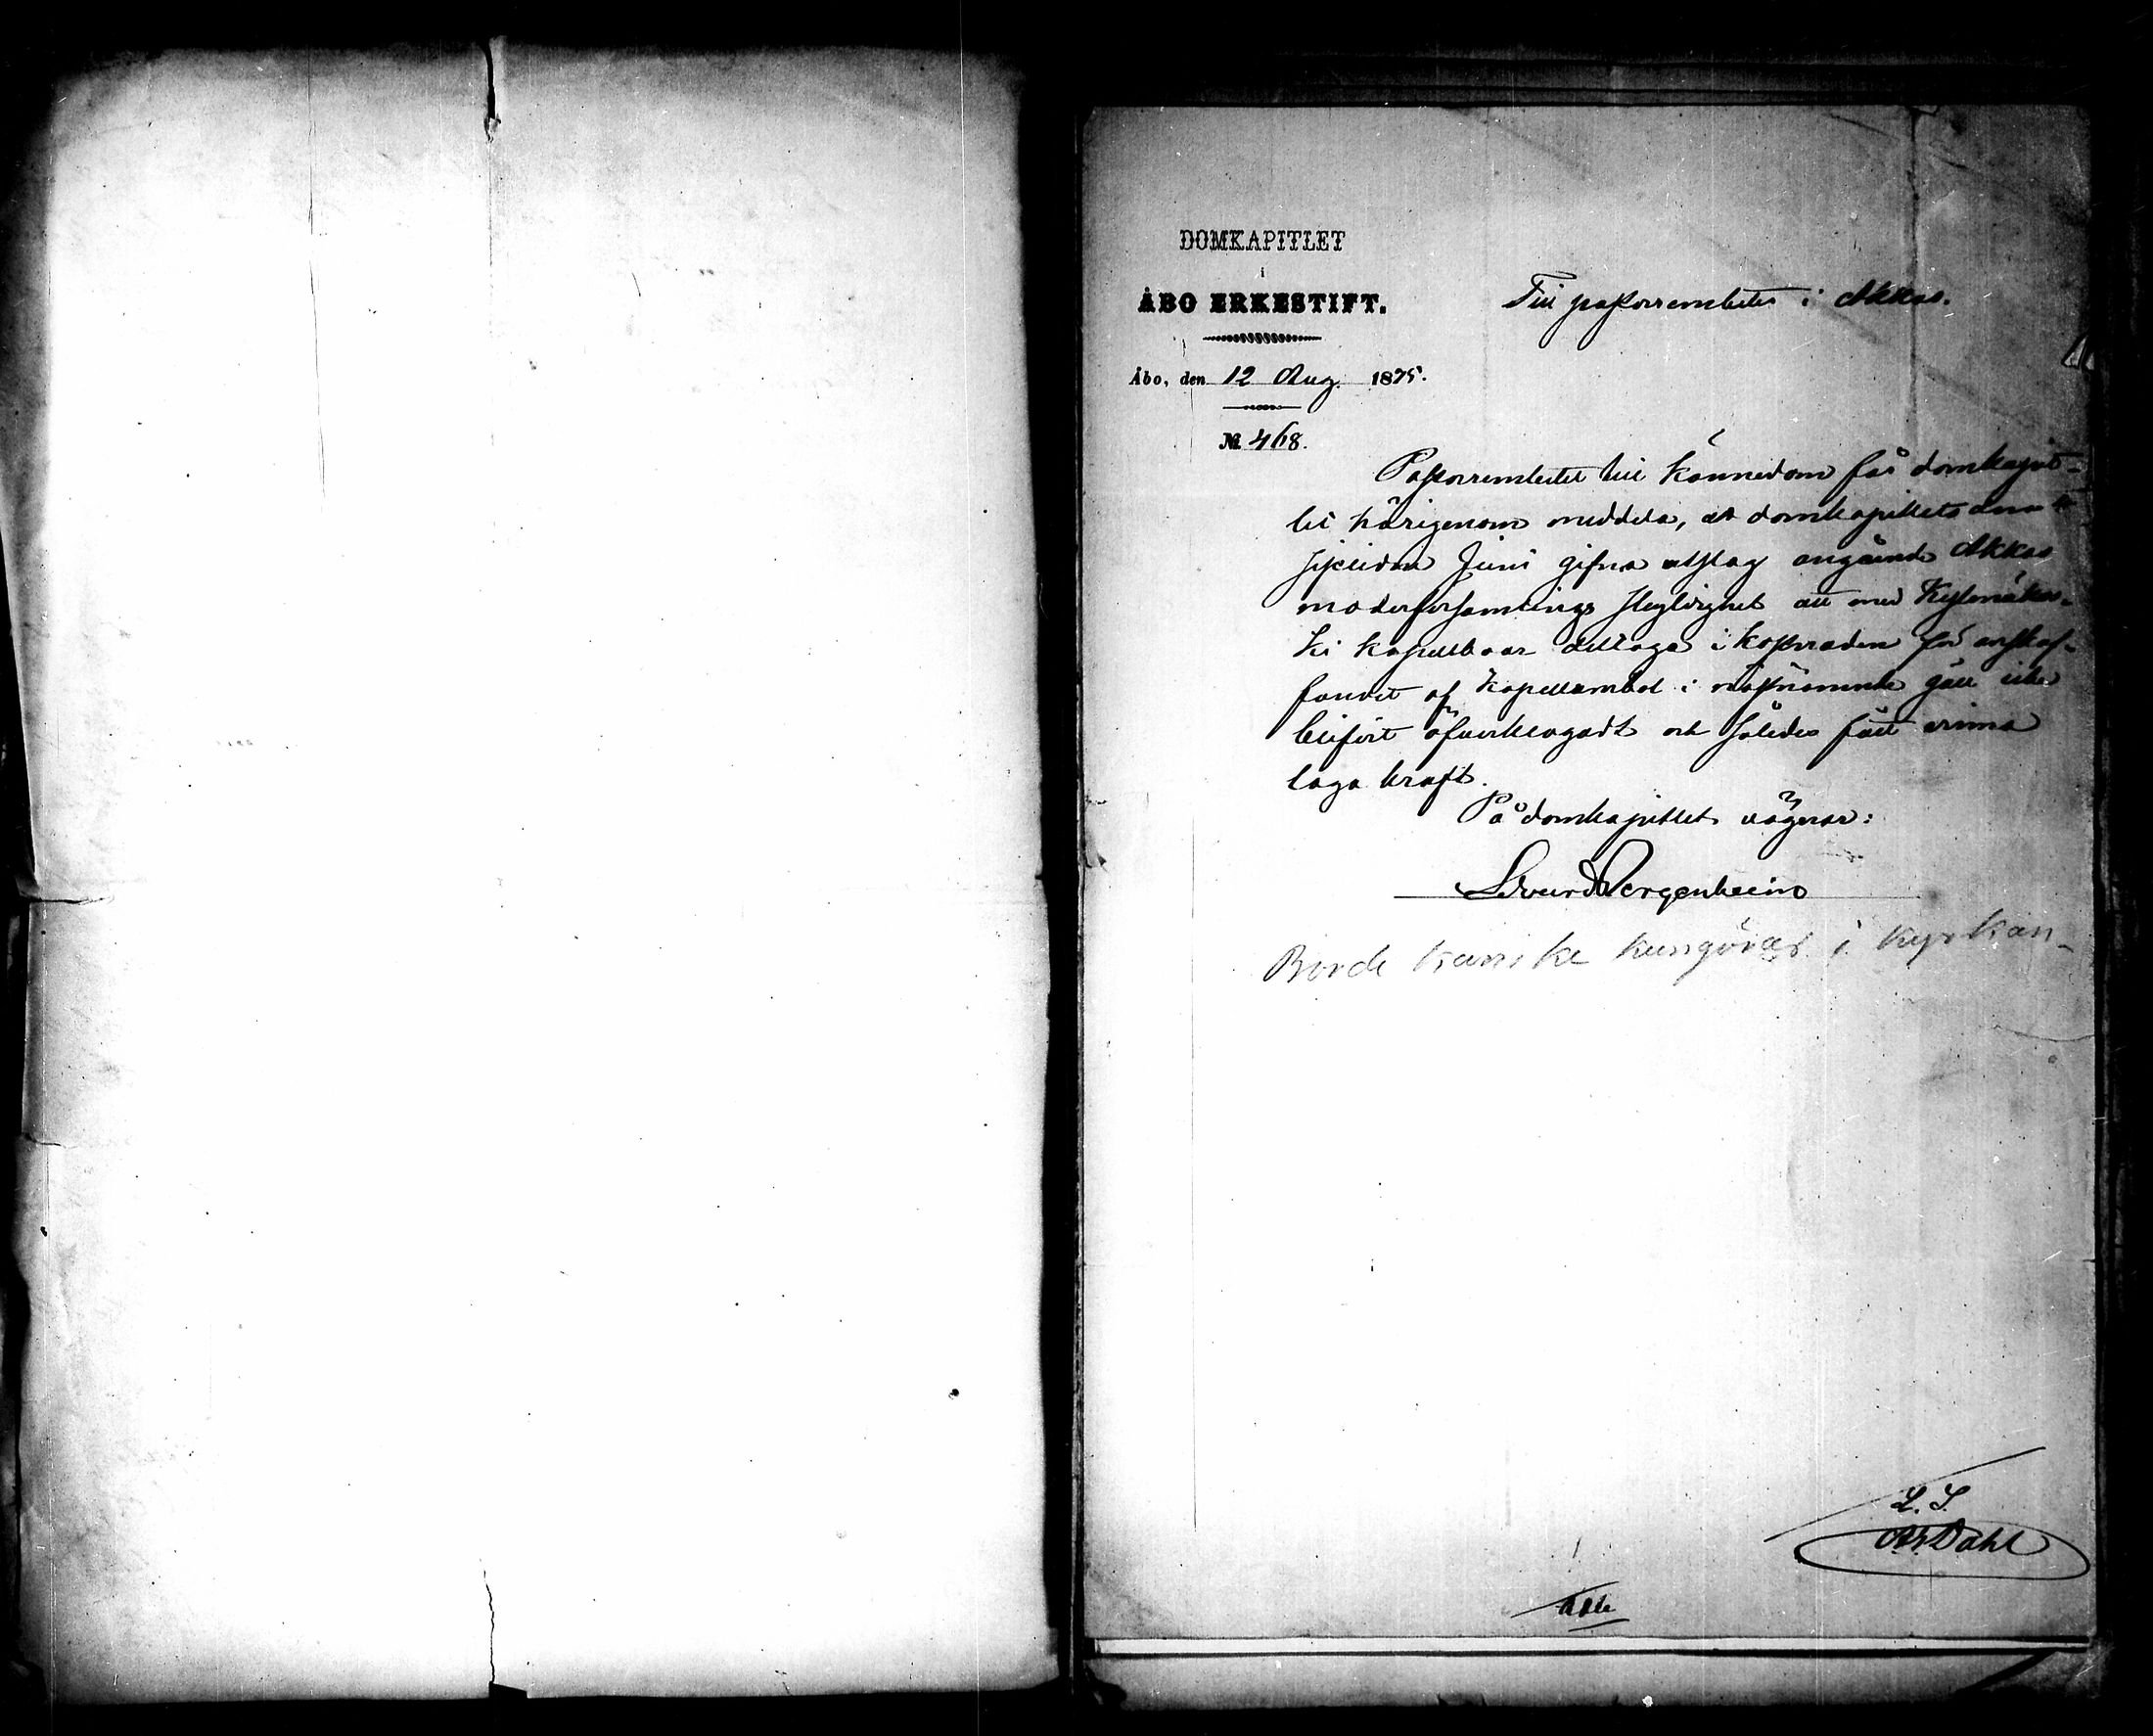 DOMKAPITLET
i
ÅBO ERKESTIFT.
Till pastorsembetet i Akkas.
Åbo, den 12 Aug. 1875.
№ 468.
Pastorsembetet till kännedom får domkapit-
let härigenom meddela, att domkapitlets den 4
sistlidne Juni gifna utslag angående Akkas
moderförsamlings skyldighet att med Kylmäkos-
ki kapellboar deltaga i kostnaden för anskaf-
fandet af kapellansbol i nästnämnde gäll icke
blifvit öfverklagadt och således fått vinna
laga kraft.
På domkapitlets vägnar:
Edvard Bergenheim
Borde kanske kungöras i kyrkan
L. S.
Dahl